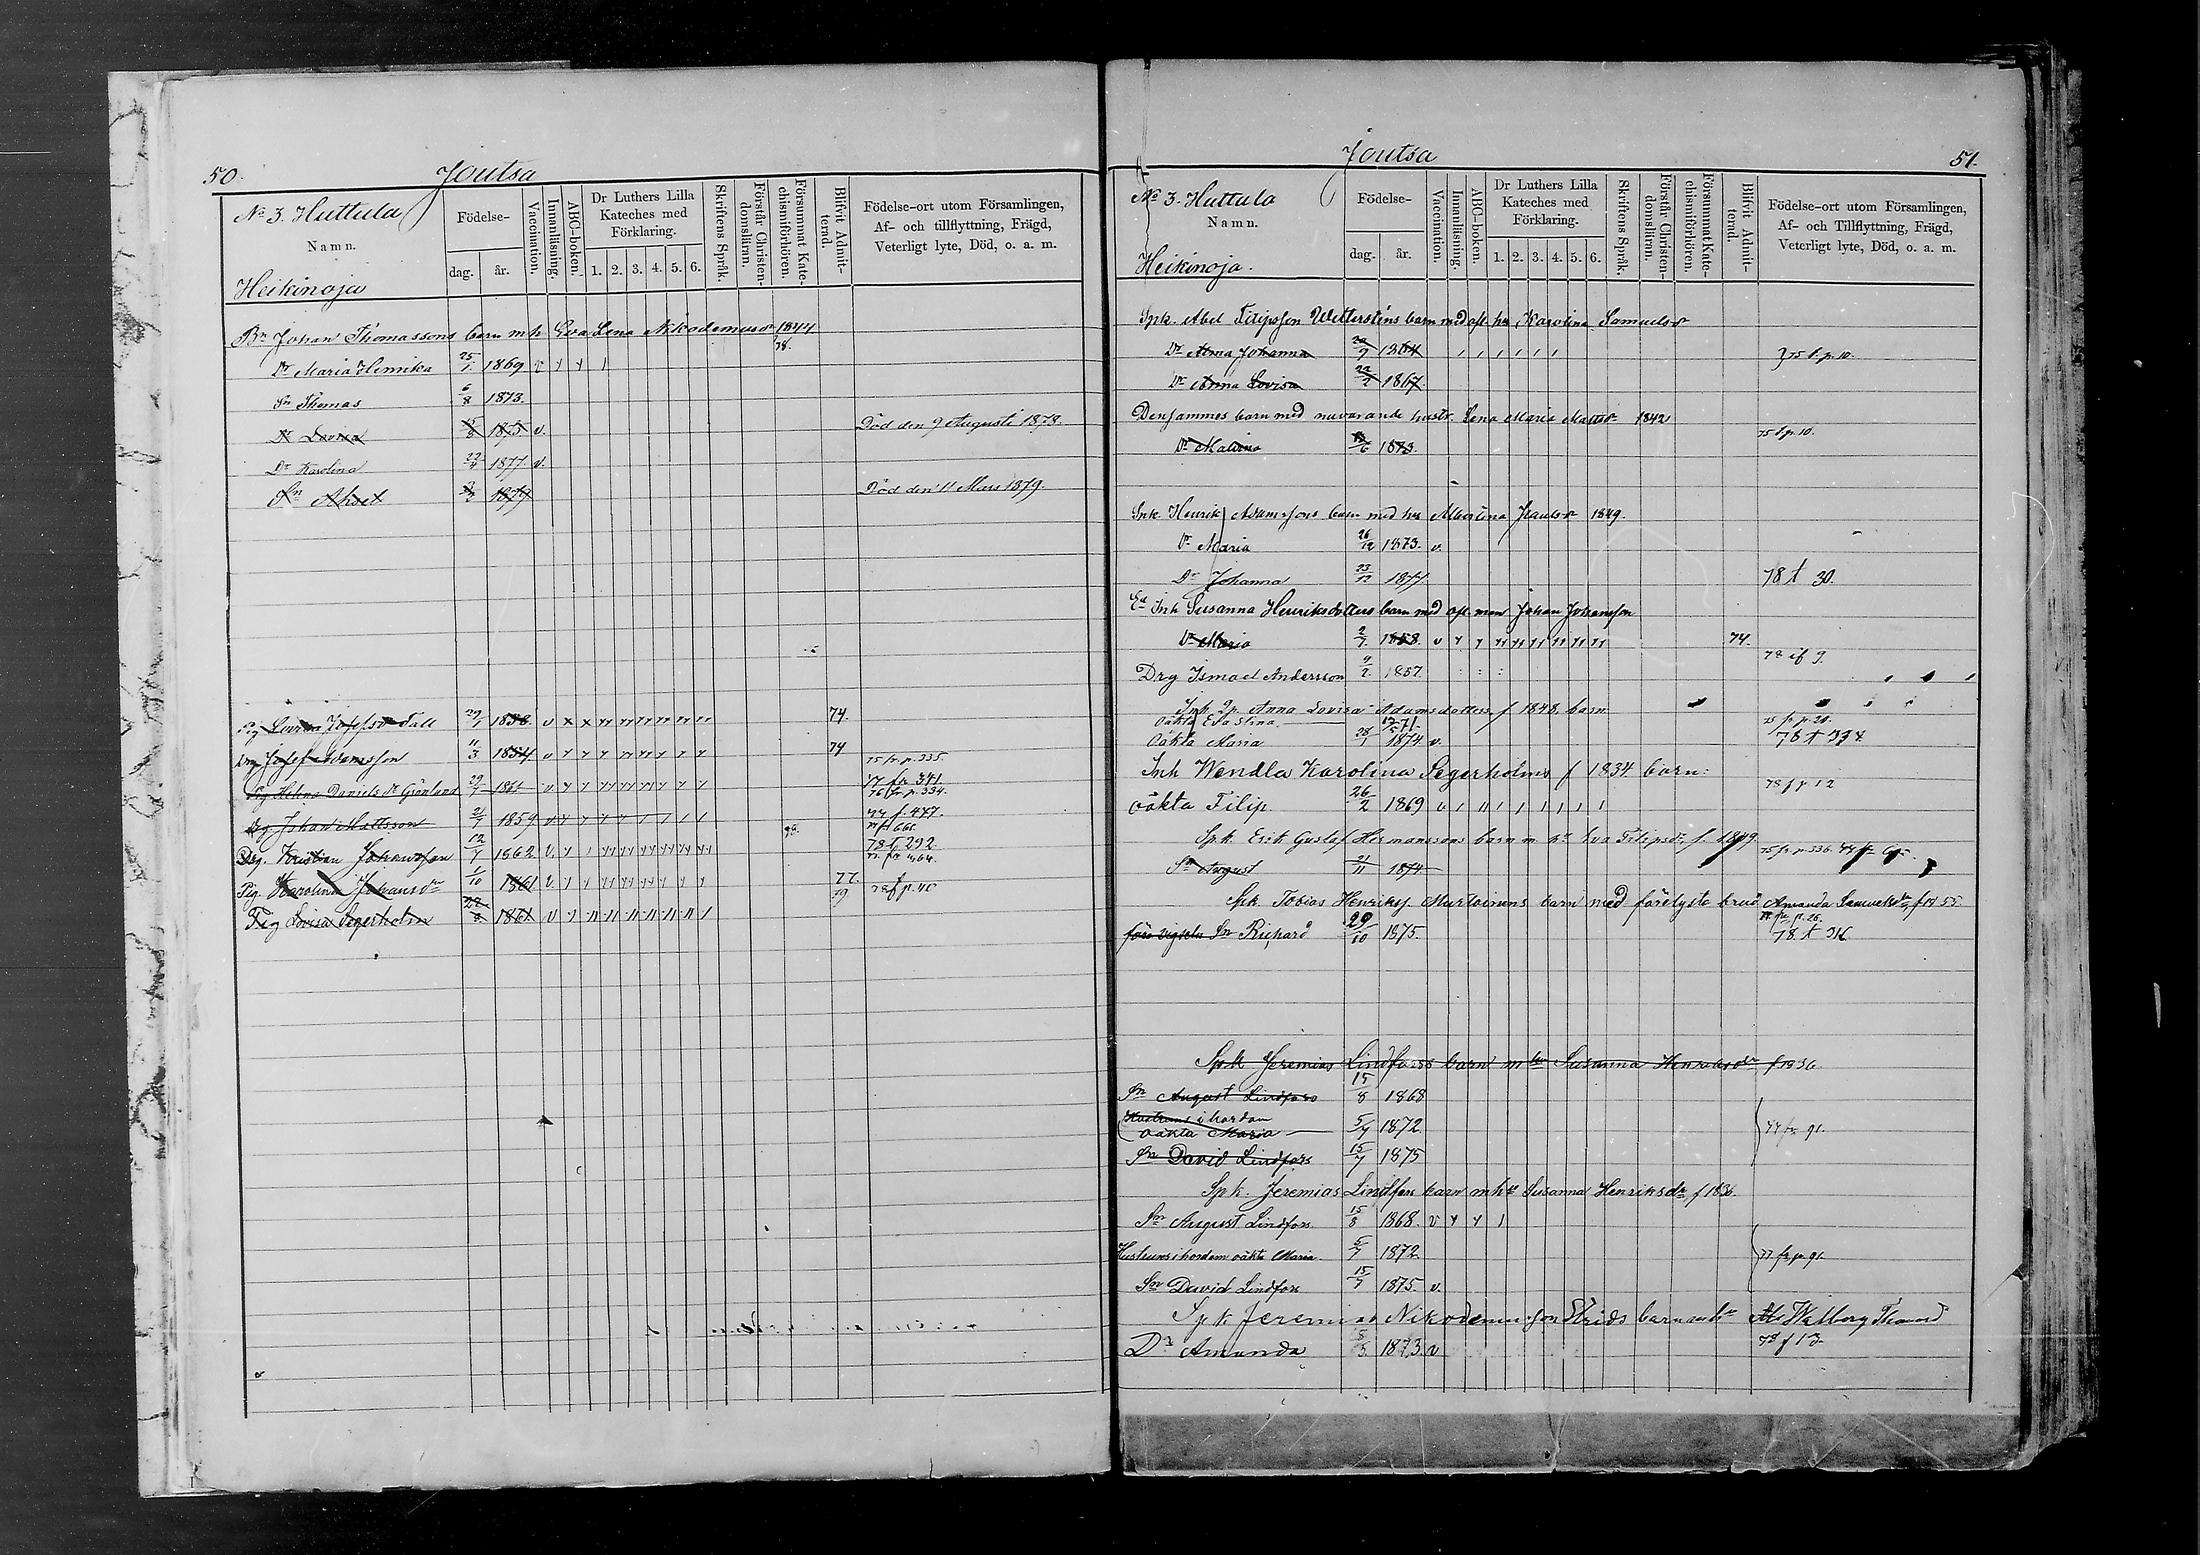 50.
Joutsa
No 3. Huttula
Namn.
Heikinoja
Födelse-
dag.
år.
Vaccination.
Innanläsning.
ABC-boken.
Dr Luthers Lilla
Kateches med
Förklaring.
1. 2. 3. 4. 5. 6.
Skriftens Språk.
Förstår Christen-
domsläran.
Försummat Kate-
chismiförhören.
Blifvit Admit-
terad.
Födelse-ort utom Församlingen,
Af- och tillflyttning, Frägd,
Veterligt lyte, Död, o. a. m.
Bn Johan Thomassons barn m h. Eva Lena Nikodemusdr 1844
78.
Dr Maria Henrika 25/1 1869 v
Sn Thomas 6/8 1873.
Dr Lovisa 1875 v. Död den 9 Augusti 1878.
Dr Karolina 22/4 1877. v.
Sn 1877 Död den 11 Mars 1879.
Pig Lovisa Josefsdr Tall 29/1 1858 v 74.
Drg Josef Adamsson 11/3 1854 v 74 75 fr p. 335.
Pig Helena Daniels dr Grönlund 29/7 1861 v 77 fr 341
76 fr p. 334.
Drg Johan Mattsson 2/7 1859 v 77 f. 447.
Drg. Kristian Johansson 12/7 1862 v. 78 t. 292
Pig. Karolina Johansdr 1/10 1861 v 77. 78 f p. 40
79
Pig Lovisa Segerholm 1861 v
Joutsa
51.
No 3. Huttula
Namn.
Heikinoja.
Födelse-
dag.
år.
Vaccination.
Innanläsning.
ABC-boken.
Dr Luthers Lilla
Kateches med
Förklaring.
1. 2. 3. 4. 5. 6.
Skriftens Språk.
Förstår Christen-
domsläran.
Försummat Kate-
chismiförhören.
Blifvit Admit-
terad.
Födelse-ort utom Församlingen,
Af- och Tillflyttning, Frägd,
Veterligt lyte, Död, o. a. m.
Spk. Abel Filipsson Wetterstens barn med afl. hu Karolina Samuelsdr
Dr Alma Johanna 1864 75 t. p. 10.
Dr Anna Lovisa 22/2 1867
Densammes barn med nuvarande hustr. Lena Maria Mattsdr 1842
75 t p. 10.
Dr Malvina 1873.
Inh. Henrik Adamssons barn med hu Albertina Paulsdr 1849.
Dr Maria 26/12 1873. v.
Dr Johanna 23/12 1877. 78 t 30.
Ea Inh Susanna Henriksdotters barn med afl. man Johan Johansson
Dr Maria 2/7 1858. v 74.
78 if 9.
Drg Ismael Andersson 9/2 1857.
Inh. Qp. Anna Lovisa Adamsdotters f 1848. barn
Oäkta Eva Stina 71. 75 fr p. 20.
Oäkta Maria 28/1 1874. v. 78 t 334
Inh Wendla Karolina Segerholms f 1834 barn:
78 f p 12
oäkta Filip 26/2 1869 v
Spk. Erik Gustaf Hermanssons barn m hu Eva Filipsdr f. 1849.
75 fr p. 336.
Sn August 21/11 1874
Spk Tobias Henrikss Murtoinens barn med förelyste brud Amanda Samuelsdr f 1855
fr p. 26.
Sn Richard 29/10 1875. 78 t 316
Spk Jeremias Lindfors barn m hu Susanna Henriksdr f 1836
Sn August Lindfors 15/8 1868
Hustruns i hordom
oäkta Maria 5/7 1872 77 fr 91.
Sn David Lindfors 15/7 1875
Spk. Jeremias Lindfors barn m hu Susanna Henriksdr f 1836.
Sn August Lindfors 15/8 1868. v
Hustruns i hordom oäkta Maria 5/7 1872 77 fr p 91.
Sn David Lindfors 15/7 1875. v.
Spk Jeremias Nikodemusson Strids barn m hu Walborg
78 f 13
Dr Amanda 1873. v